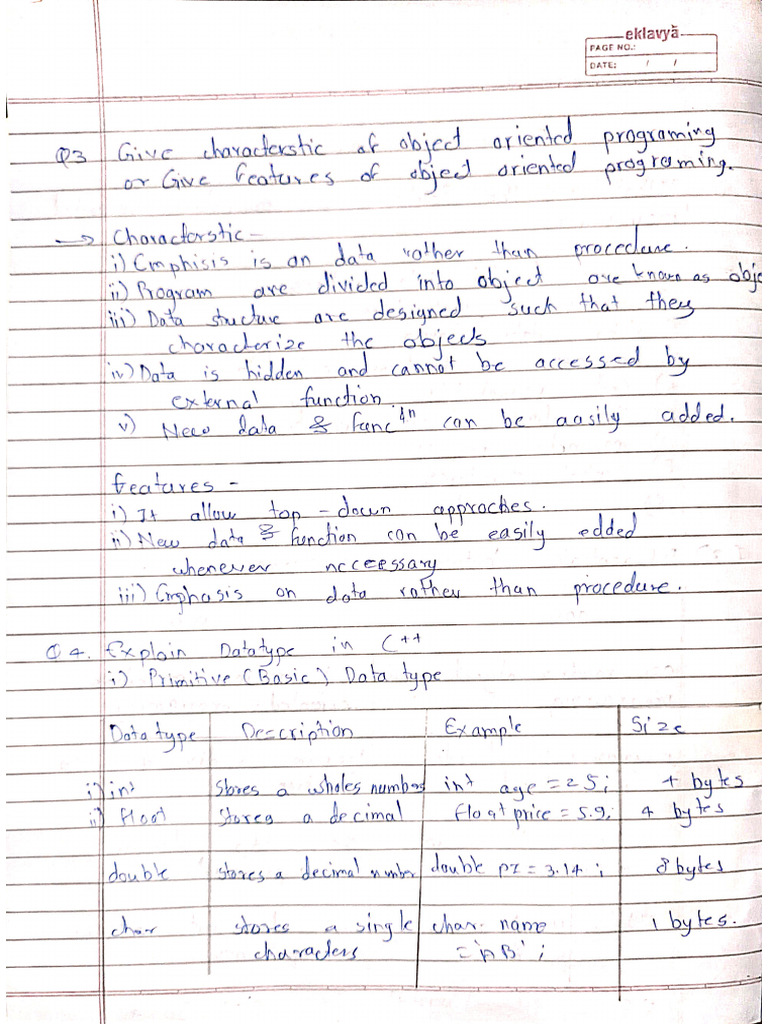 eklavyā
PAGE NO.:
DATE: / /
Q3 Give characterstic of object oriented programing
or Give features of object oriented programing.
→ Characterstic -
i) Emphisis is on data rather than procedure.
ii) Program are divided into object are known as obje
iii) Data stucture are designed such that they
characterize the objects
iv) Data is hidden and cannot be accessed by
external function
v) New data & func^tn can be aasily added.
features -
i) It allow top - down approches.
ii) New data & function can be easily edded
whenever neceessary
iii) Emphasis on data rather than procedure.
Q 4. Explain Datatype in C++
i) Primitive (Basic) Data type
Data type Description Example Size
i) int stores a wholes number int age = 25; 4 bytes
ii) float stores a decimal float price = 5.9; 4 bytes
double stores a decimal number double PI = 3.14 ; 8 bytes
char stores a single char name 1 bytes.
characters = 'AB' ;